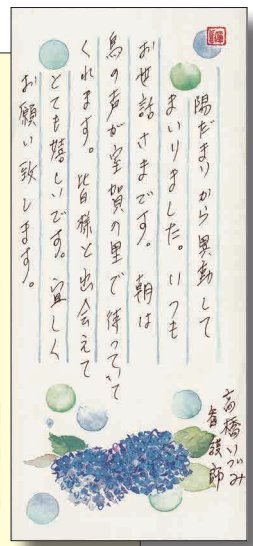 陽だまりから異動して
まいりました。いつも
お世話さまです。朝は
鳥の声が室賀の里で待っていて
くれます。皆様と出会えて
とても嬉しいです。宜しく
お願い致します。
高橋いづみ
看護師